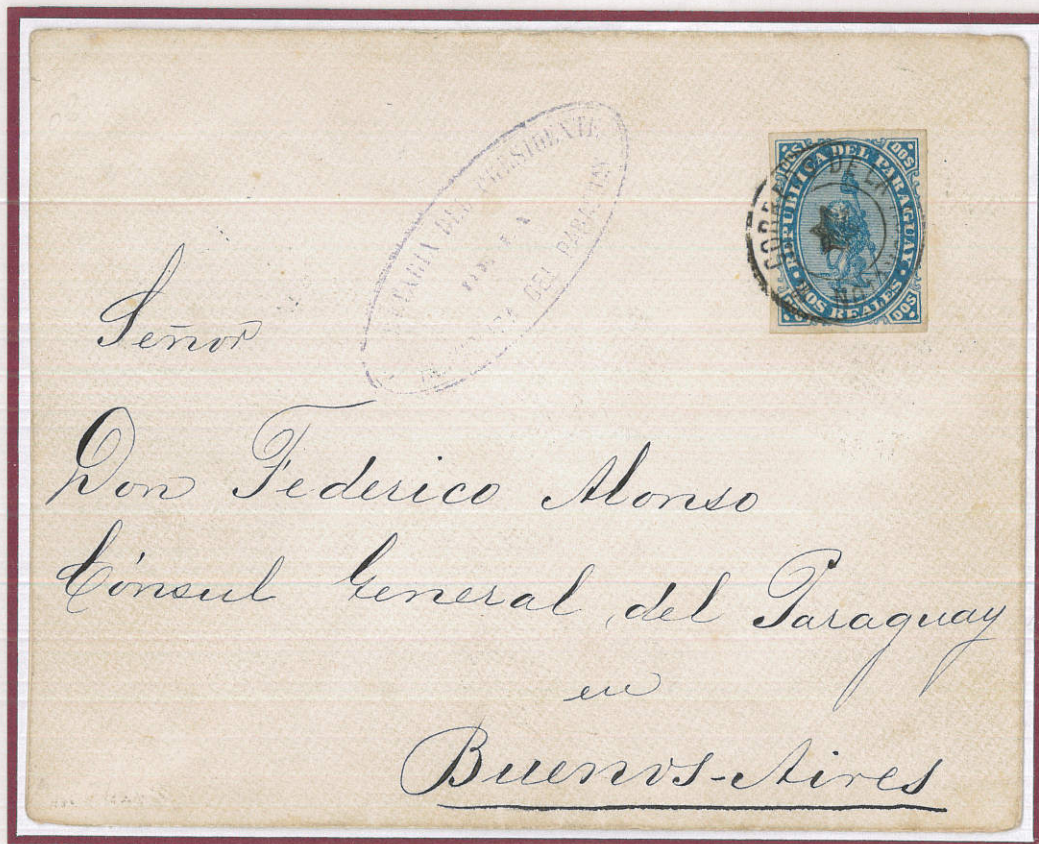 DEL PRESIDENTE
DE LA
DEL
DOS DOS
REPUBLICA DEL PARAGUAY
DOS REALES
DOS
CORREOS DE LA
Señor
Don Federico Alonso
Cónsul General del Paraguay
en
Buenos-Aires